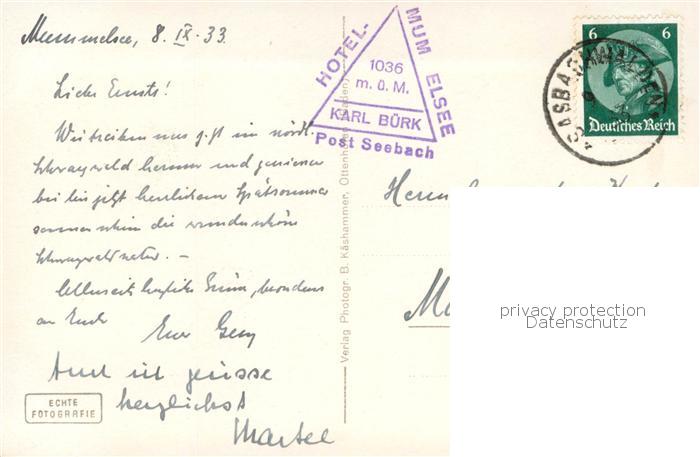 Mummelsee, 8. IX. 33.
Liebe Ernsts!
Wir treiben uns z. Zt im nördl.
Schwarzwald herum und geniessen
bei bis jetzt herrlichem Spätsommer
sonnenschein die wunderschöne
Schwarzwaldnatur. –
Allerseits herzliche Grüsse, besonders
an Euch
Euer
Auch ich grüsse
herzlichst
Martel
ECHTE
FOTOGRAFIE
Verlag Photogr. B. Käshammer, Ottenhöfen (Baden)
HOTEL-
MUM ELSEE
1036
m. ü. M.
KARL BÜRK
Post Seebach
6 6
Deutsches Reich
SASBACHWALDEN
Herrn
privacy protection
Datenschutz